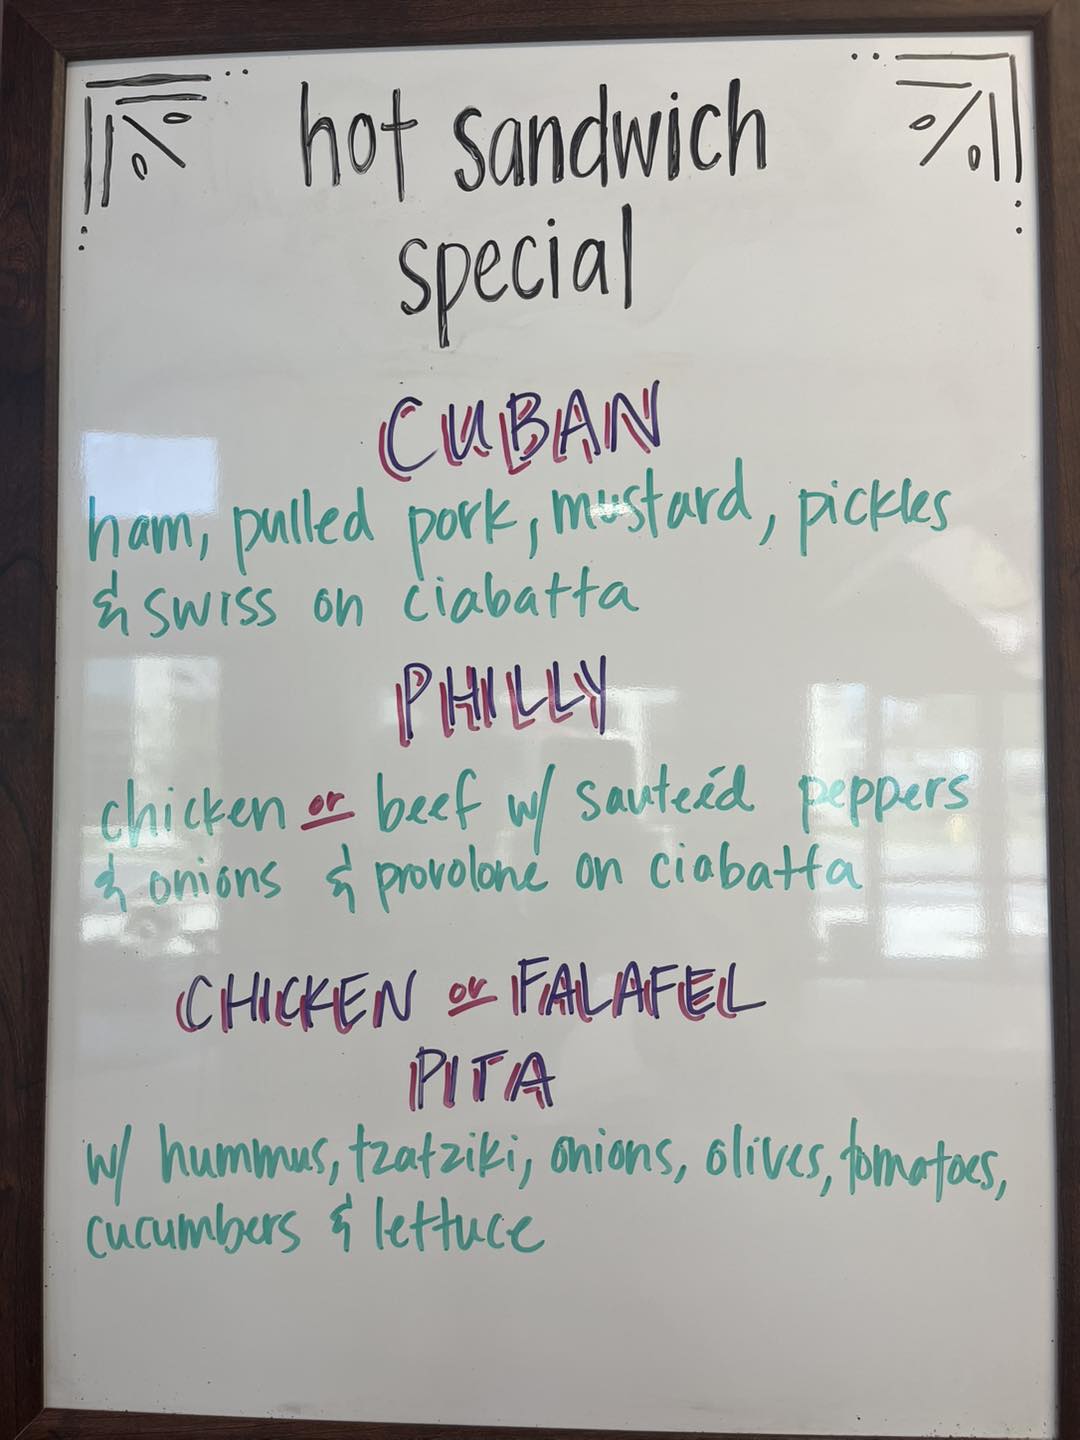 hot sandwich
special
CUBAN
ham, pulled pork, mustard, pickles
& swiss on ciabatta
PHILLY
chicken or beef w/ sauteéd peppers
& onions & provolone on ciabatta
CHICKEN or FALAFEL
PITA
w/ hummus, tzatziki, onions, olives, tomatoes,
cucumbers & lettuce